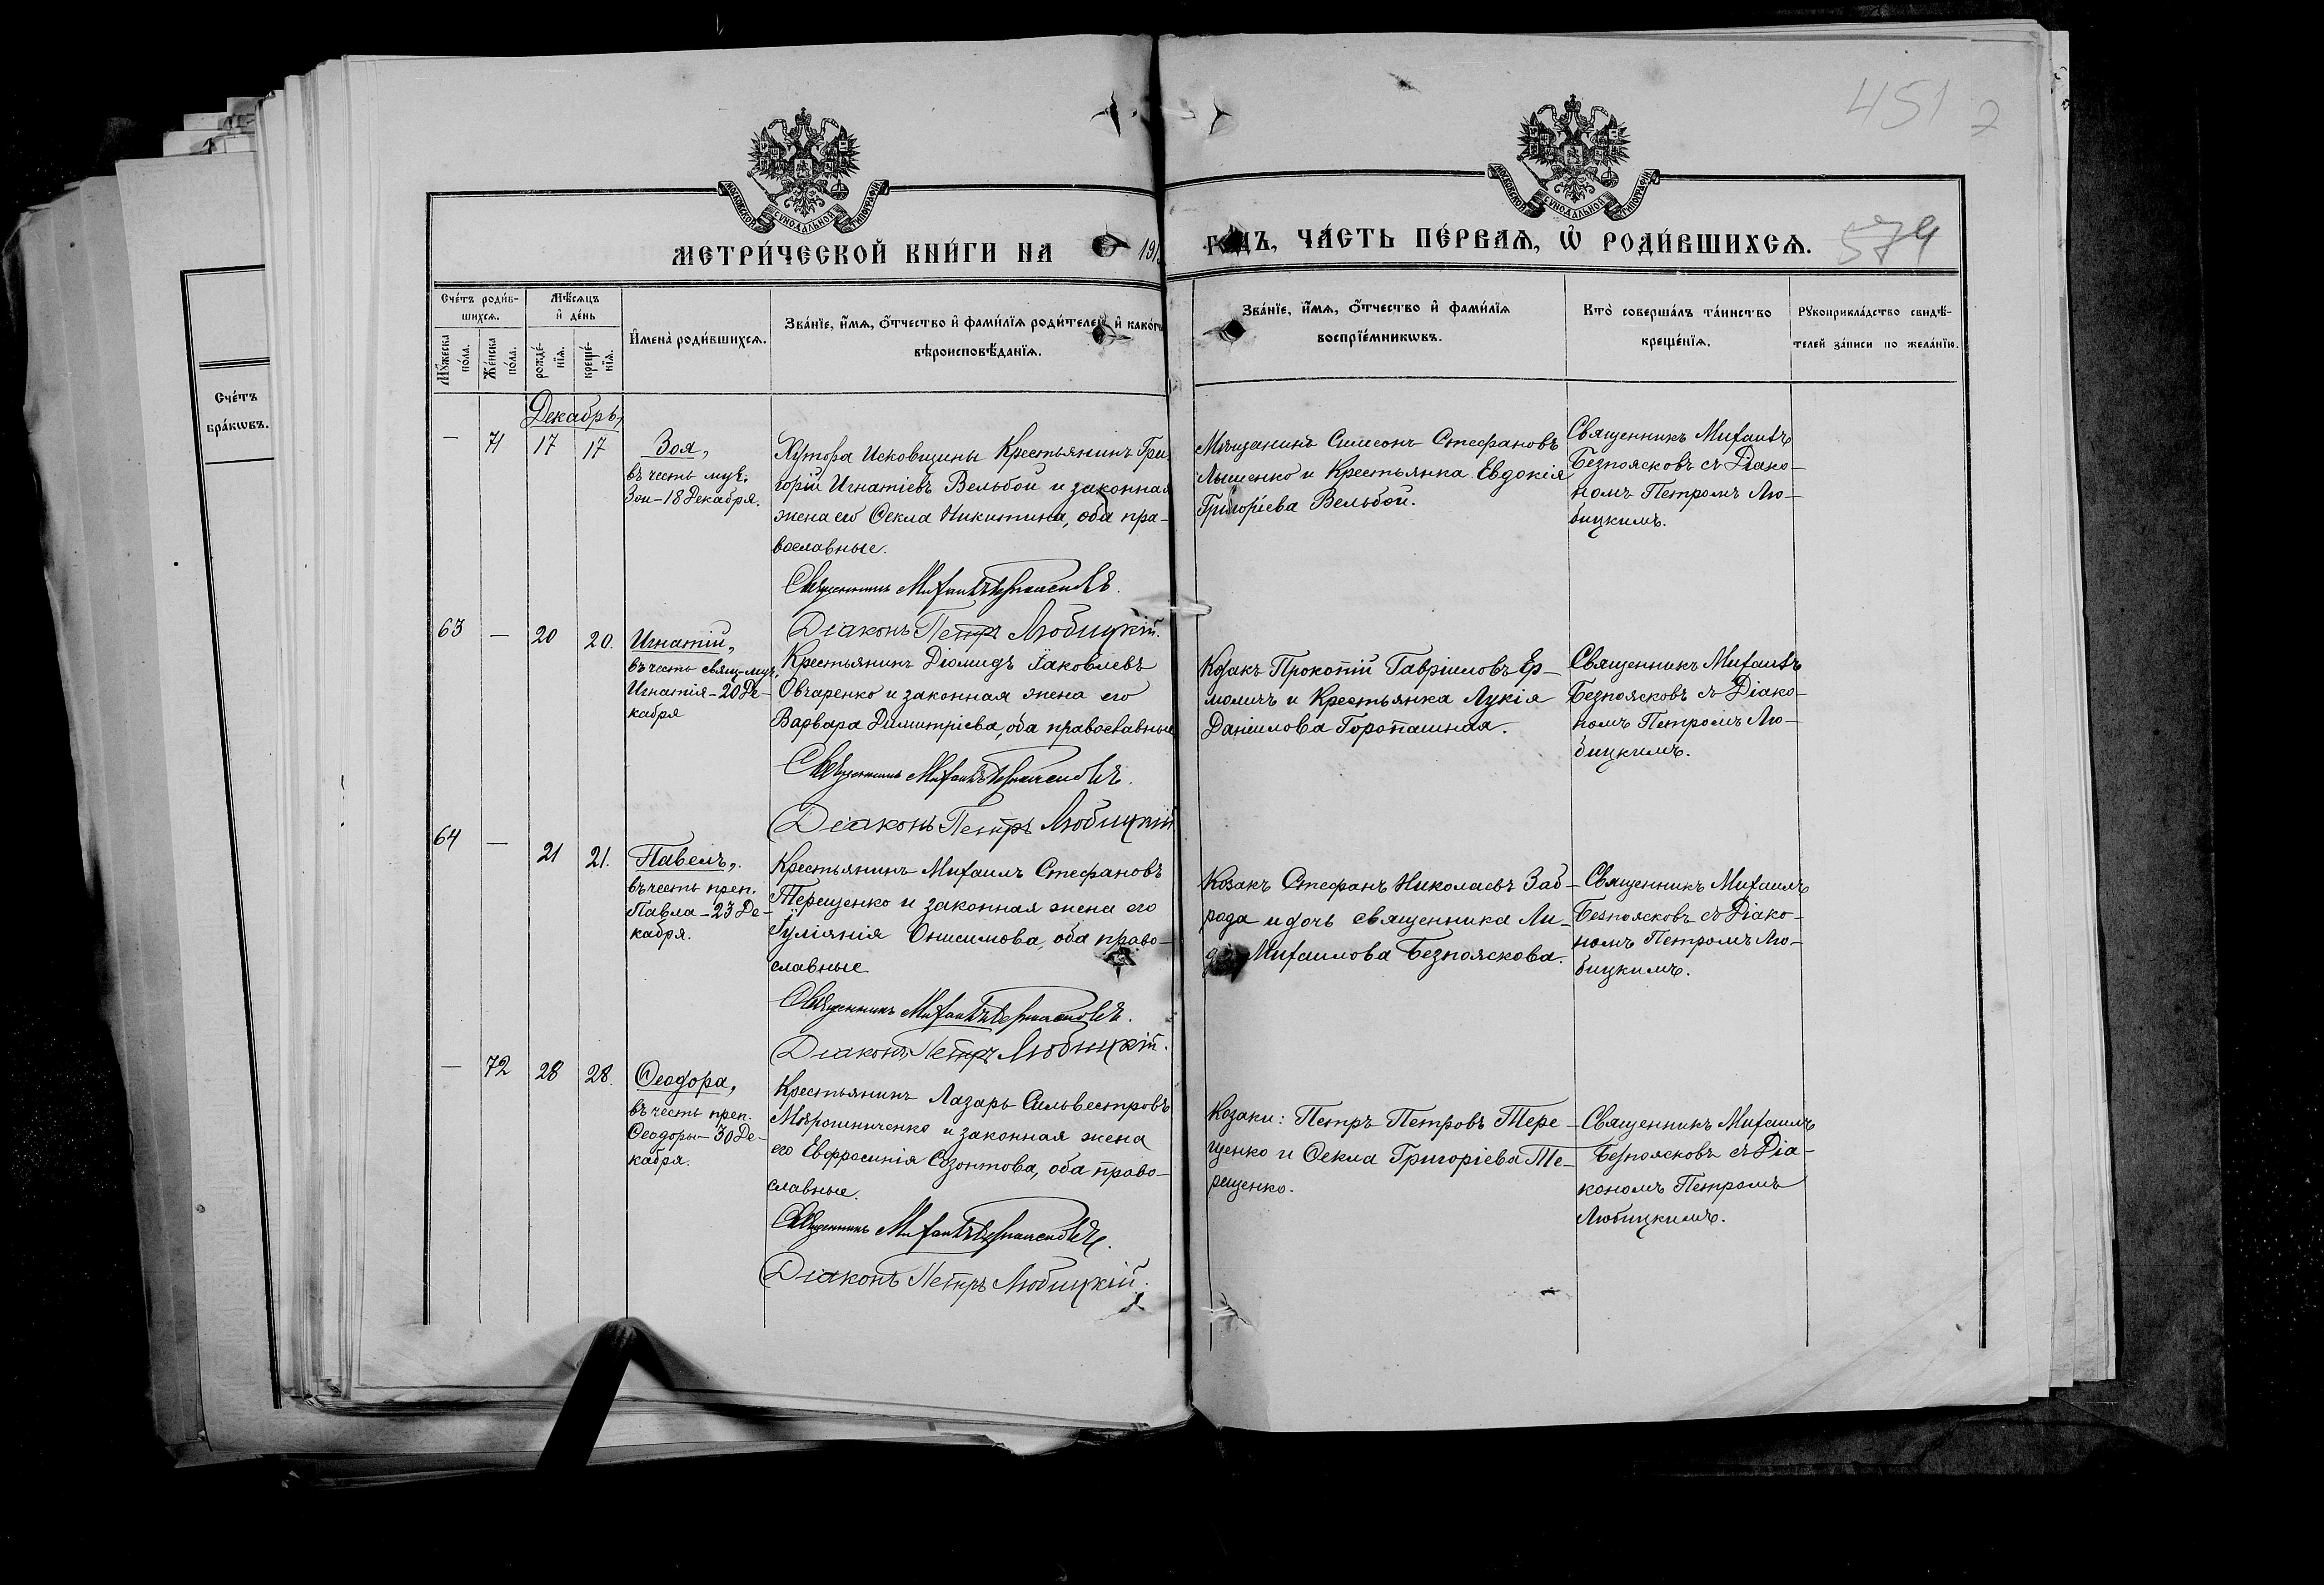 451 2
МОСКОВСКОЙ СѴНОДАЛЬНОЙ ТИПОГРАФІИ
МОСКОВСКОЙ СѴНОДАЛЬНОЙ ТИПОГРАФІИ
МЕТРИ́ЧЕСКОЙ КНИ́ГИ НА 191
ГОДЪ, ЧА́СТЬ ПЕ́РВАѦ, Ѽ РОДИ́ВШИХСѦ.
574
Сче́тъ роди́в-
шихсѧ.
Мѣ́сѧцъ
и҆ де́нь
Мꙋ́жеска
по́ла.
Же́нска
по́ла.
рожде́-
нїѧ.
креще́-
нїѧ.
И҆мена̀ роди́вшихсѧ.
Зва́нїе, и҆́мѧ, ѻ҆́тчество и҆ фами́лїѧ роди́телей, и҆ како́гѡ
вѣроисповѣ́данїѧ.
Зва́нїе, и҆́мѧ, ѻ҆́тчество и҆ фами́лїѧ
воспрїе́мникѡвъ.
Кто̀ соверша́лъ та́инство
креще́нїѧ.
Рꙋкоприкла́дство свидѣ́-
телей за́писи по жела́нїю.
Сче́тъ
бра́кѡвъ.
Декабрь,
— 71 17 17
Зоя,
въ честь муч.
Зои – 18 Декабря.
Хутора Исковщины Крестьянинъ Гри-
горій Игнатіевъ Вельбой и законная
жена его Ѳекла Никитина, оба пра-
вославные.
Священникъ Михаилъ Безпоясковъ.
Діаконъ Петръ Любицкій.
Мѣщанинъ Симеонъ Стефановъ
Лышенко и Крестьянка Евдокія
Григоріева Вельбой.
Священникъ Михаилъ
Безпоясковъ съ Діако-
номъ Петромъ Лю-
бицкимъ.
63 — 20 20.
Игнатій,
въ честь свящ-муч.
Игнатія – 20 Де-
кабря
Крестьянинъ Діомидъ Іаковлевъ
Овчаренко и законная жена его
Варвара Димитріева, оба православные
Священникъ Михаилъ Безпоясковъ.
Діаконъ Петръ Любицкій
Козакъ Прокопій Гавріиловъ Ер-
моличъ и Крестьянка Лукія
Даніилова Горопашная.
Священникъ Михаилъ
Безпоясковъ съ Діако-
номъ Петромъ Лю-
бицкимъ.
64 — 21 21.
Павелъ,
въ честь преп.
Павла – 23 Де-
кабря.
Крестьянинъ Михаилъ Стефановъ
Терещенко и законная жена его
Іуліянія Онисимова, оба право-
славные
Священникъ Михаилъ Безпоясковъ.
Діаконъ Петръ Любицкій.
Козакъ Стефанъ Николаевъ Заб-
рода и дочь священника Ли-
Михаилова Безпояскова.
Священникъ Михаилъ
Безпоясковъ съ Діако-
номъ Петромъ Лю-
бицкимъ.
— 72 28 28.
Ѳеодора,
въ честь преп.
Ѳеодоры – 30 Де-
кабря.
Крестьянинъ Лазарь Сильвестровъ
Мѣрошниченко и законная жена
его Евфросинія Созонтова, оба право-
славные.
Священникъ Михаилъ Безпоясковъ.
Діаконъ Петръ Любицкій.
Козаки: Петръ Петровъ Тере-
щенко и Ѳекла Григоріева Те-
рещенко.
Священникъ Михаилъ
Безпоясковъ съ Діа-
кономъ Петромъ
Любицкимъ.